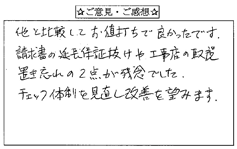 ☆ご意見・ご感想☆
他と比較してお値打ちで良かったです。
請求書の延長保証抜けや工事店の取説
置き忘れの2点が残念でした。
チェック体制を見直し改善を望みます。